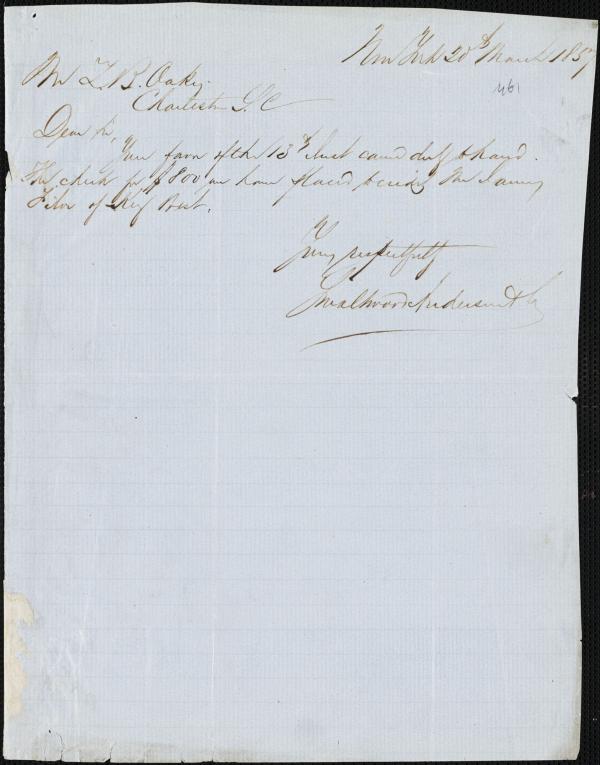 New York 20th March 1857
461
Mr Z. B. Oakes
Charleston S. C
Dear Sir,
Your favor of the 13th Inst came duly to hand.
The check for $800 we have placed to credit Mr James
Filor of Key West.
Yours respectfully
Smallwood Anderson & Co